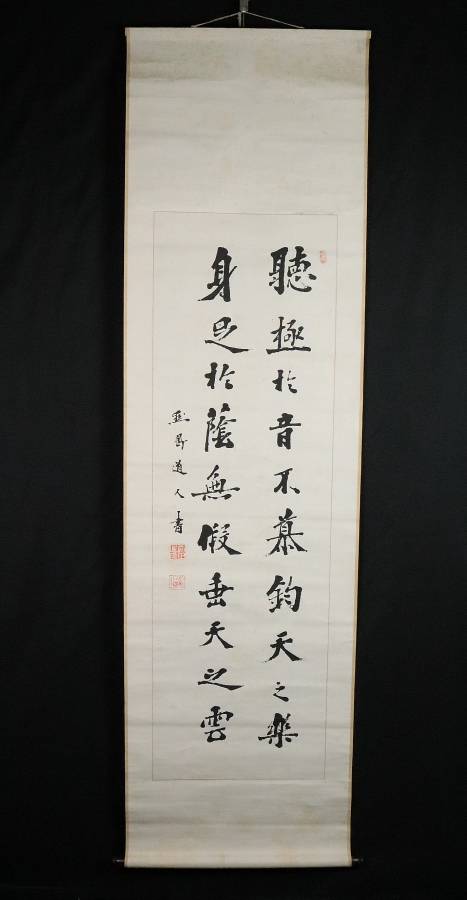 聽極於音不慕鈞天之樂
身足於蔭無假垂天之雲
道人書